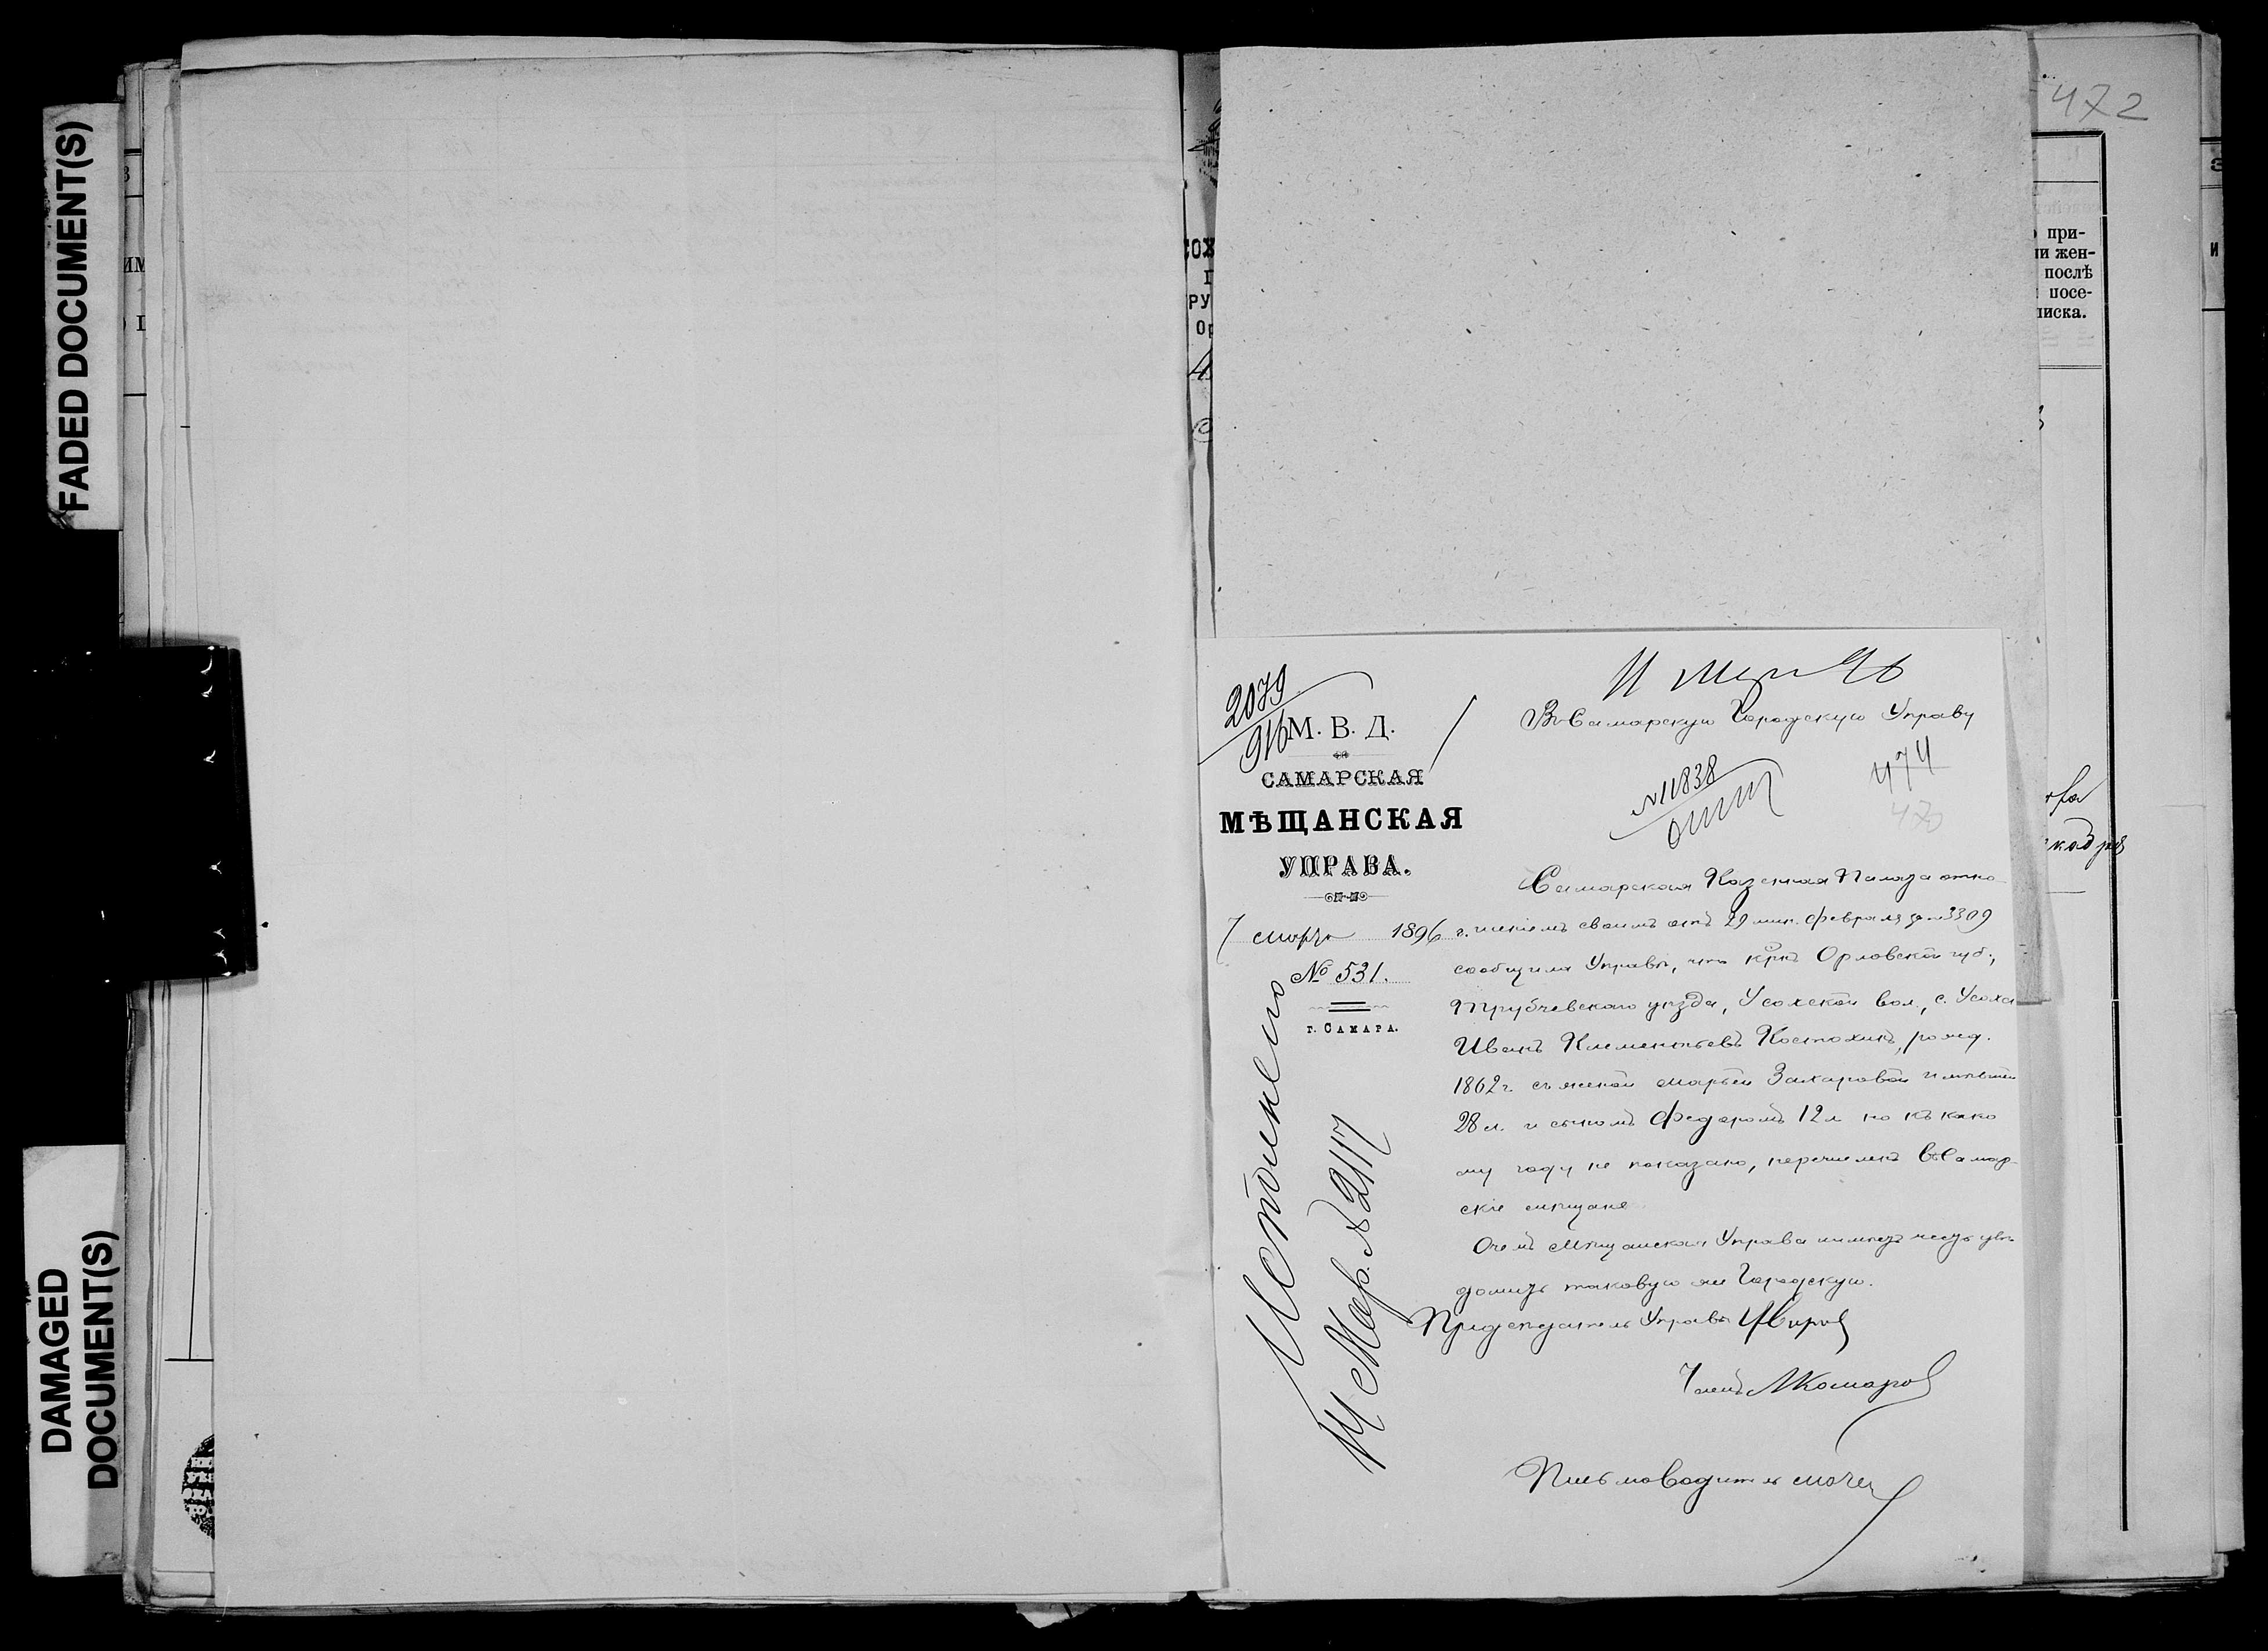 FADED DOCUMENT(S)
DAMAGED
DOCUMENT(S)
472
при-
жен-
послѣ
посе-
2079
916
М. В. Д.
САМАРСКАЯ
МѢЩАНСКАЯ
УПРАВА.
7 марта 1896 г.
№ 531.
г. САМАРА.
Въ Самарскую Городскую Управу
474
№ 11838
Самарская Казенная Палата отно
шеніемъ своимъ отъ 29 мин. февраля за № 3309
сообщила Управѣ, что кр-нъ Орловской губ.,
Трубчевскаго уѣзда, Усохской вол., с. Усоха
Иванъ Клементьевъ Костюхинъ, рожд.
1862 г. съ женой Марьей Захаровой имѣвшей
28 л. и сыномъ Федоромъ 12 л но къ како
му году не показано, перечисленъ въ Самар-
скіе мѣщане
О чемъ Мѣщанская Управа имѣетъ честь увѣ
домить таковую же Городскую.
Предсѣдатель Управы
Членъ АКомаров
Письмоводитель
Исполнено
14 Мар. № 2117